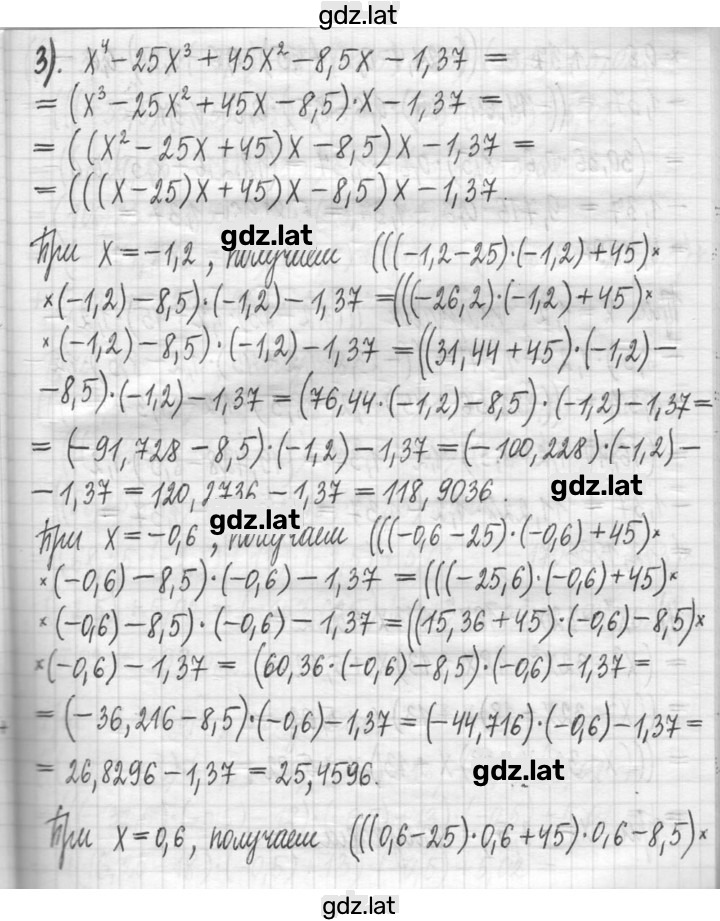 gdz.lat
3). x⁴ - 25x³ + 45x² - 8,5x - 1,37 =
= (x³ - 25x² + 45x - 8,5)·x - 1,37 =
= ((x² - 25x + 45)x - 8,5)x - 1,37 =
= (((x - 25)x + 45)x - 8,5)x - 1,37.
gdz.lat
При x = -1,2, получаем (((-1,2 - 25)·(-1,2) + 45)×
×(-1,2) - 8,5)·(-1,2) - 1,37 = (((-26,2)·(-1,2) + 45)×
×(-1,2) - 8,5)·(-1,2) - 1,37 = ((31,44 + 45)·(-1,2) -
- 8,5)·(-1,2) - 1,37 = (76,44·(-1,2) - 8,5)·(-1,2) - 1,37 =
= (-91,728 - 8,5)·(-1,2) - 1,37 = (-100,228)·(-1,2) -
- 1,37 = 120,2736 - 1,37 = 118,9036.
gdz.lat
gdz.lat
При x = -0,6, получаем (((-0,6 - 25)·(-0,6) + 45)×
×(-0,6) - 8,5)·(-0,6) - 1,37 = (((-25,6)·(-0,6) + 45)×
×(-0,6) - 8,5)·(-0,6) - 1,37 = ((15,36 + 45)·(-0,6) - 8,5)×
×(-0,6) - 1,37 = (60,36·(-0,6) - 8,5)·(-0,6) - 1,37 =
= (-36,216 - 8,5)·(-0,6) - 1,37 = (-44,716)·(-0,6) - 1,37 =
= 26,8296 - 1,37 = 25,4596.
gdz.lat
При x = 0,6, получаем (((0,6 - 25)·0,6 + 45)·0,6 - 8,5)×
gdz.lat